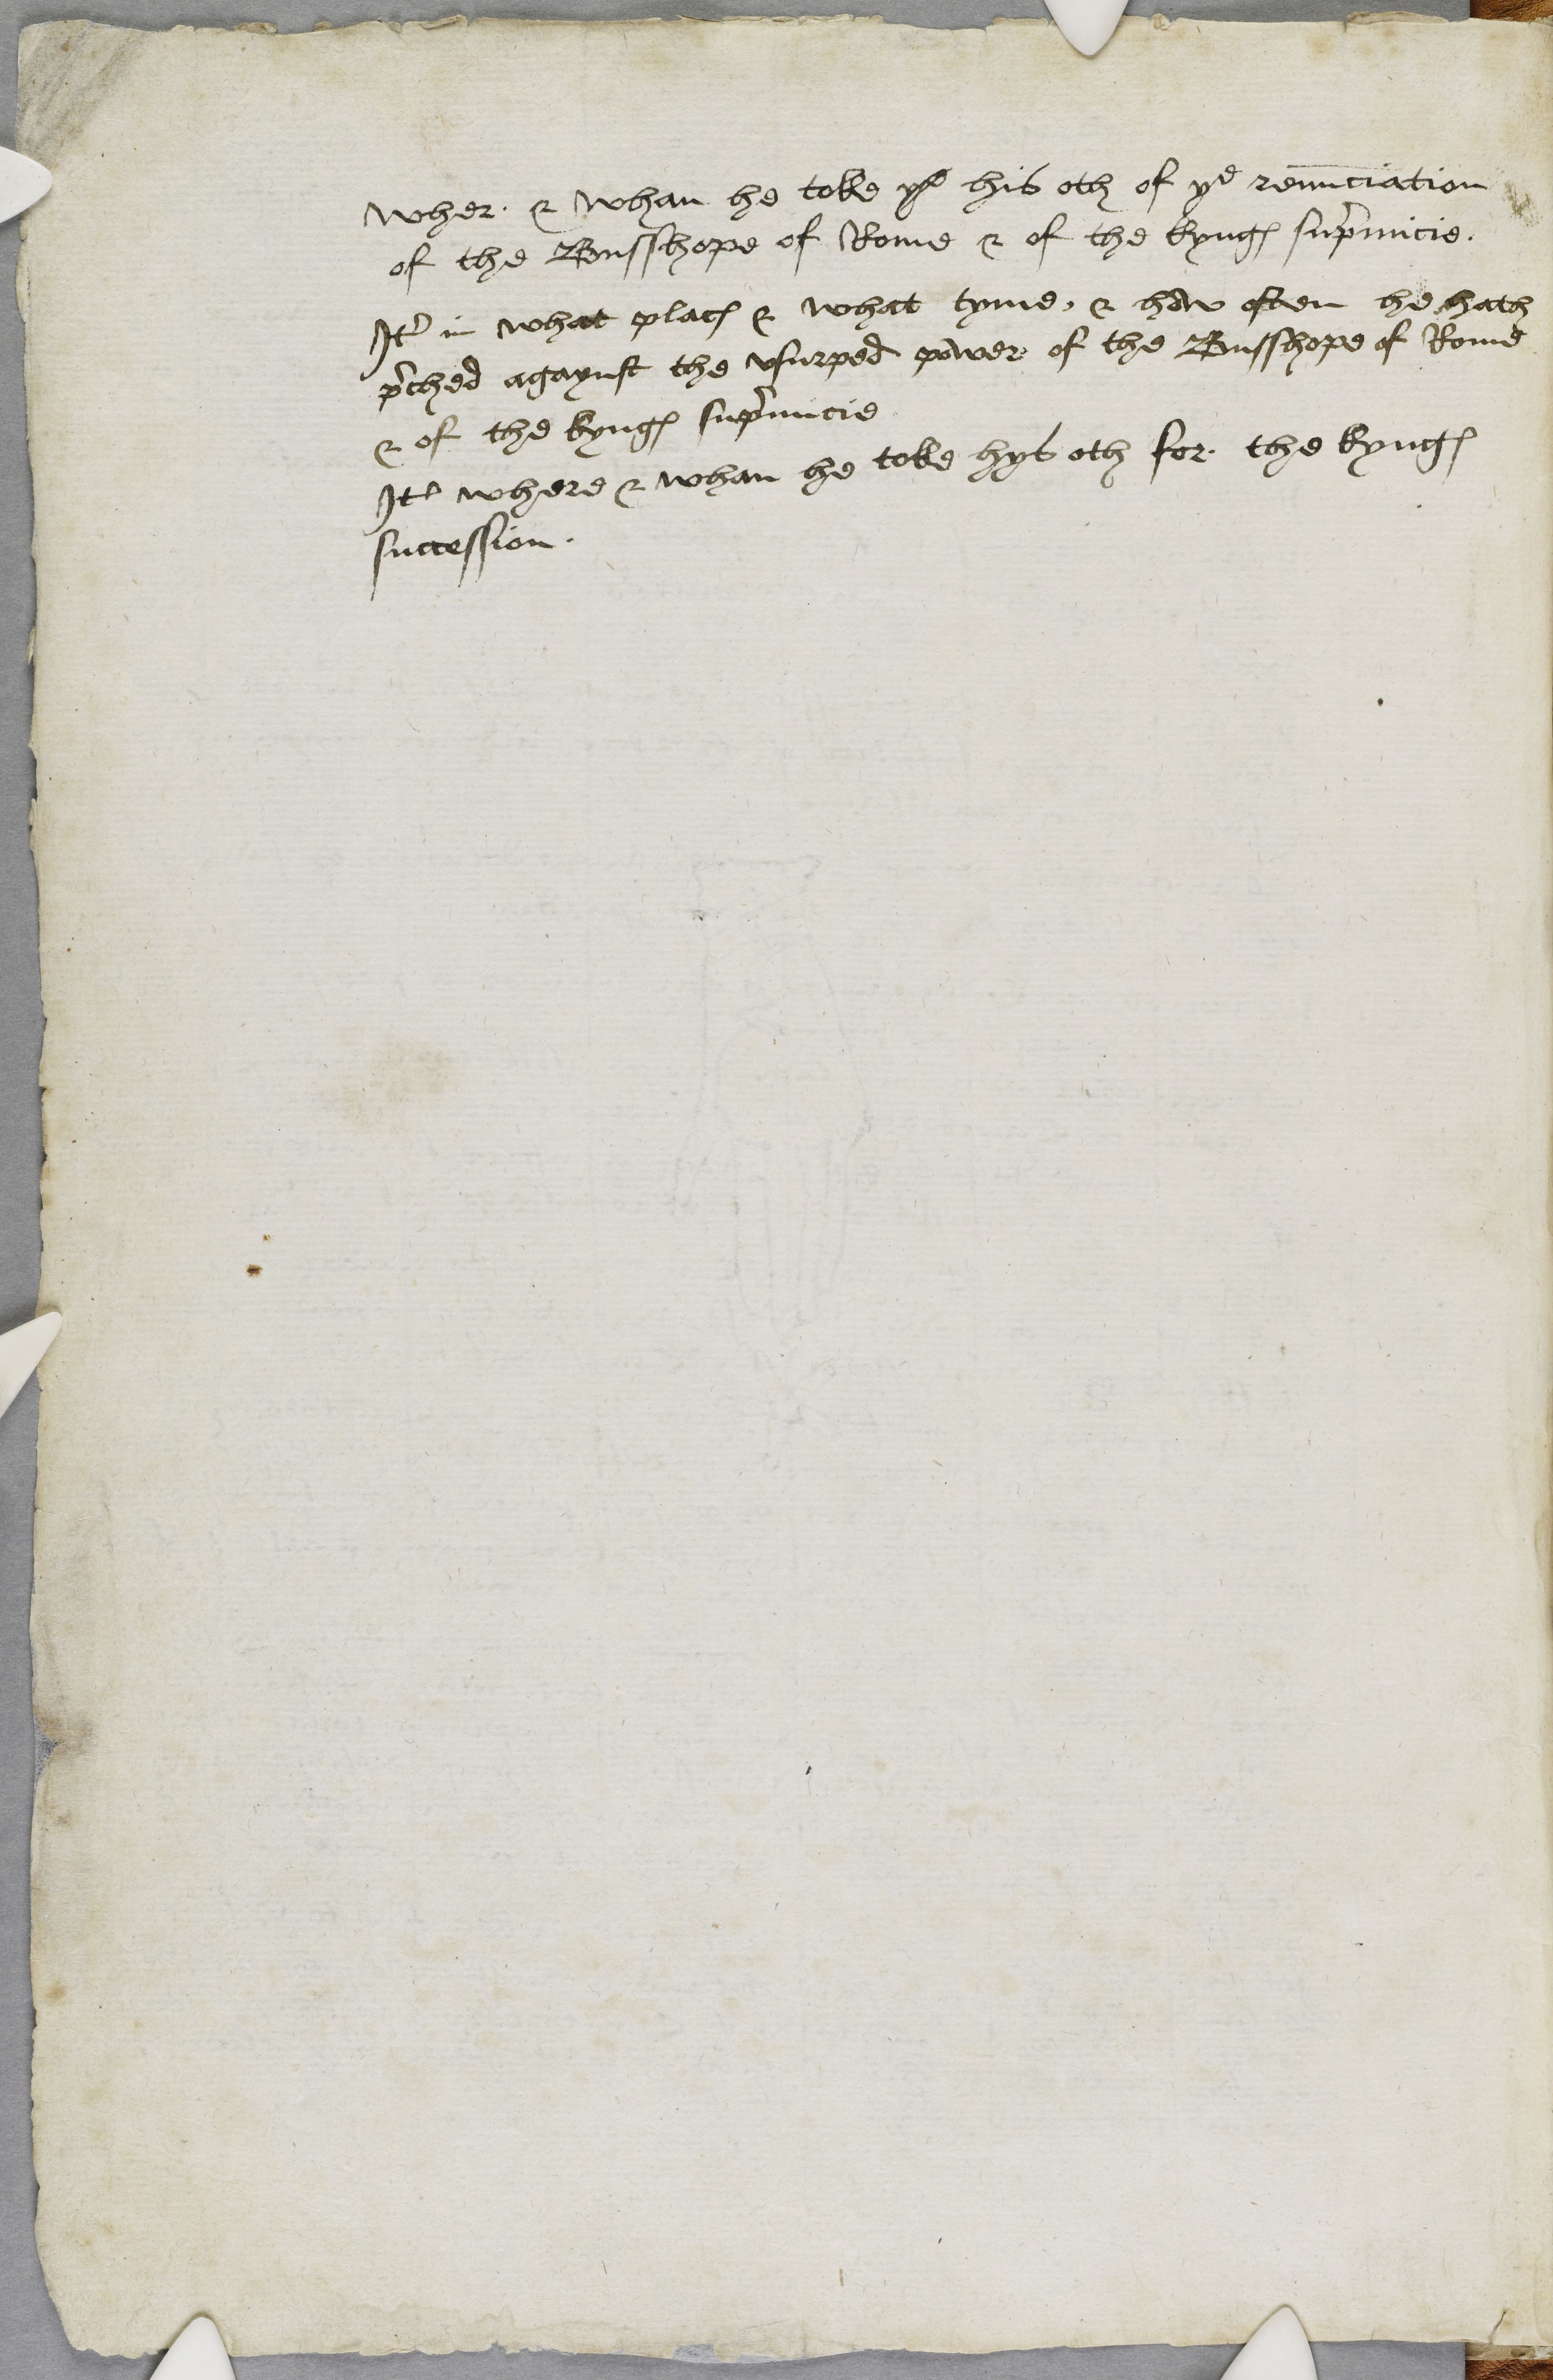 wher & whan he toke yͤ his oth of yͤ renunciation
of the Busshope of Rome & of the kyngꝭ supͬmicie.
Itͫ in what placꝭ & what tyme, & how often he hath
pͬched agaynst the vsurped power of the Busshope of Rome
& of the kyngꝭ supͬmicie
Itͫ where & whan he toke hys oth for the kyngꝭ
succession.